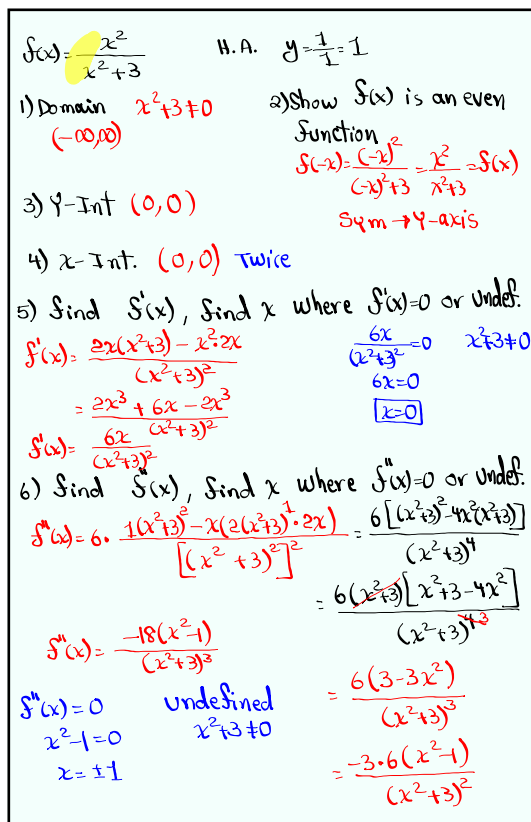 f(x) = x²/(x²+3)    H.A. y = 1/1 = 1
1) Domain x²+3≠0
(-∞,∞)
2) Show f(x) is an even
function
f(-x) = (-x)²/((-x)²+3) = x²/(x²+3) = f(x)
Sym → Y-axis
3) Y-Int (0,0)
4) x-Int. (0,0) Twice
5) find f'(x), find x where f'(x)=0 or undef.
f'(x) = (2x(x²+3) - x²·2x)/(x²+3)²
= (2x³ + 6x - 2x³)/(x²+3)²
f'(x) = 6x/(x²+3)²
6x/(x²+3)² = 0    x²+3≠0
6x=0
x=0
6) find f"(x), find x where f"(x)=0 or undef.
f"(x) = 6 · (1(x²+3)² - x(2(x²+3)¹·2x))/[(x²+3)²]² = 6[(x²+3)²-4x²(x²+3)]/(x²+3)⁴
= 6(x²+3)[x²+3-4x²]/(x²+3)⁴ 3
= 6(3-3x²)/(x²+3)³
= -3·6(x²-1)/(x²+3)²
f"(x) = -18(x²-1)/(x²+3)³
f"(x) = 0
x²-1=0
x=±1
undefined
x²+3≠0